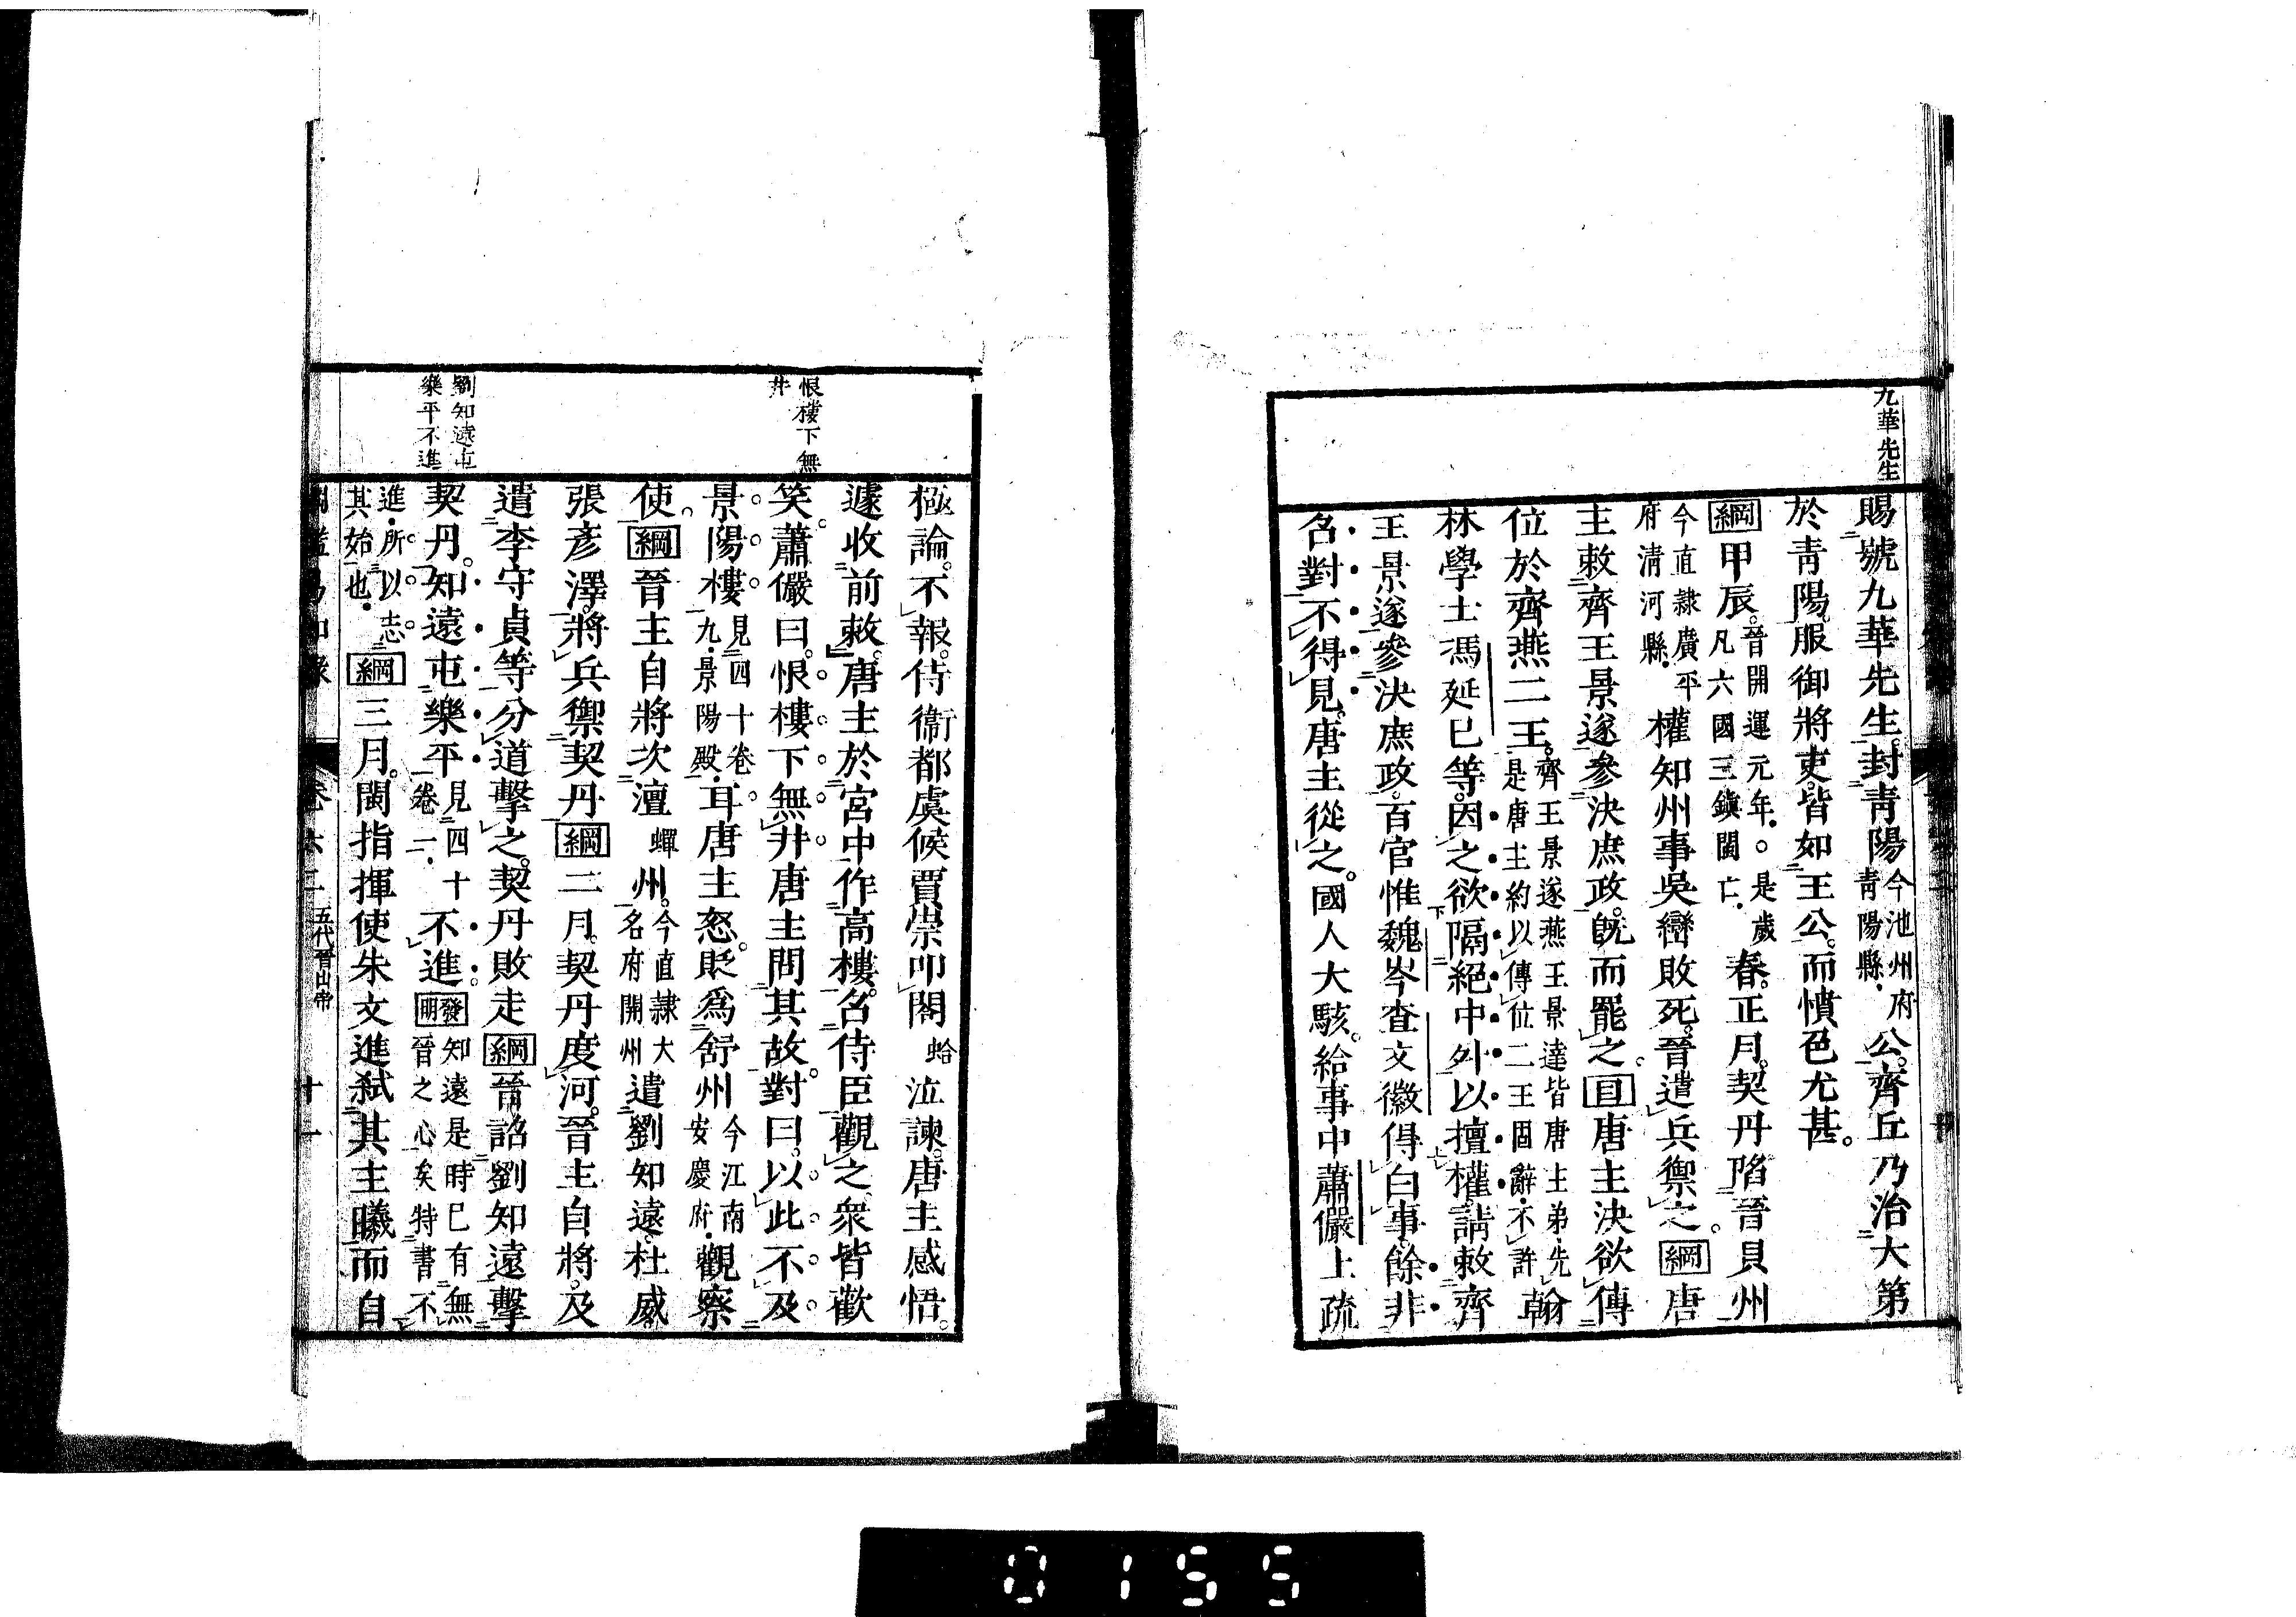 九華先生
賜號九華先生。封青陽今池州府青陽縣。公。齊丘乃治大第
於青陽。服御將吏。皆如王公。而憤色尤甚。
綱甲辰。晉開運元年。○是歲凡六國三鎭閩亡。春。正月。契丹陷晉貝州
今直隸廣平府淸河縣。權知州事吳巒敗死。晉遣兵禦之。綱唐
主敕齊王景遂參決庶政。旣而罷之。目唐主決欲傳
位於齊燕二王。齊王景遂燕王景達皆唐主弟。先是唐主約以傳位二王固辭。不許翰
林學士馮延巳等。因之欲隔絕中外以擅權。請敕齊
王景遂參決庶政。百官惟魏岑查文徽得白事。餘非
名對不得見。唐主從之。國人大駭。給事中蕭儼上疏
恨樓下無井
劉知遠屯樂平不進
極論。不報。侍衞都虞候賈崇叩閤蛤泣諫。唐主感悟。
遽收前敕。唐主於宮中作高樓。名侍臣觀之。衆皆歡
笑。蕭儼曰。恨樓下無井。唐主問其故。對曰。以此不及
景陽樓見四十卷九。景陽殿。耳。唐主怒。貶爲舒州今江南安慶府。觀察
使。綱晉主自將次澶蟬州。今直隸大名府開州遣劉知遠。杜威。
張彥澤。將兵禦契丹。綱二月。契丹度河。晉主自將。及
遣李守貞等分道擊之。契丹敗走綱晉詔劉知遠擊
契丹。知遠屯樂平見四十卷二。不進發明知遠是時已有無晉之心矣特書不
進。所以志其始也。綱三月。閩指揮使朱文進弒其主曦而自
卷六十二 五代晉出帝 十一
0155